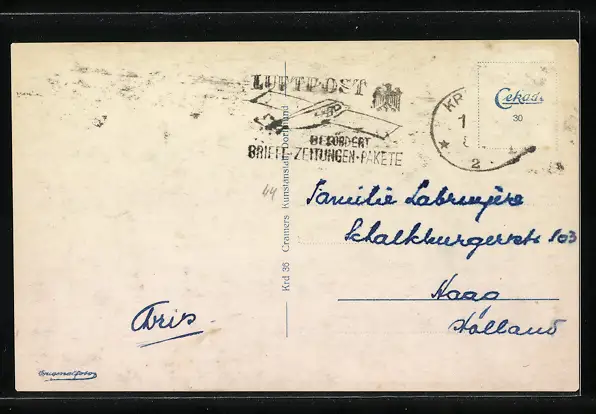 LUFTPOST
BEFÖRDERT
BRIEFE-ZEITUNGEN-PAKETE
KR
1
2
Cekade
30
44
Krd 36 Cramers Kunstanstalt, Dortmund
Familie Labruyère
Schalkburgerstr. 103
Haag
Holland
Chris.
Originalfoto